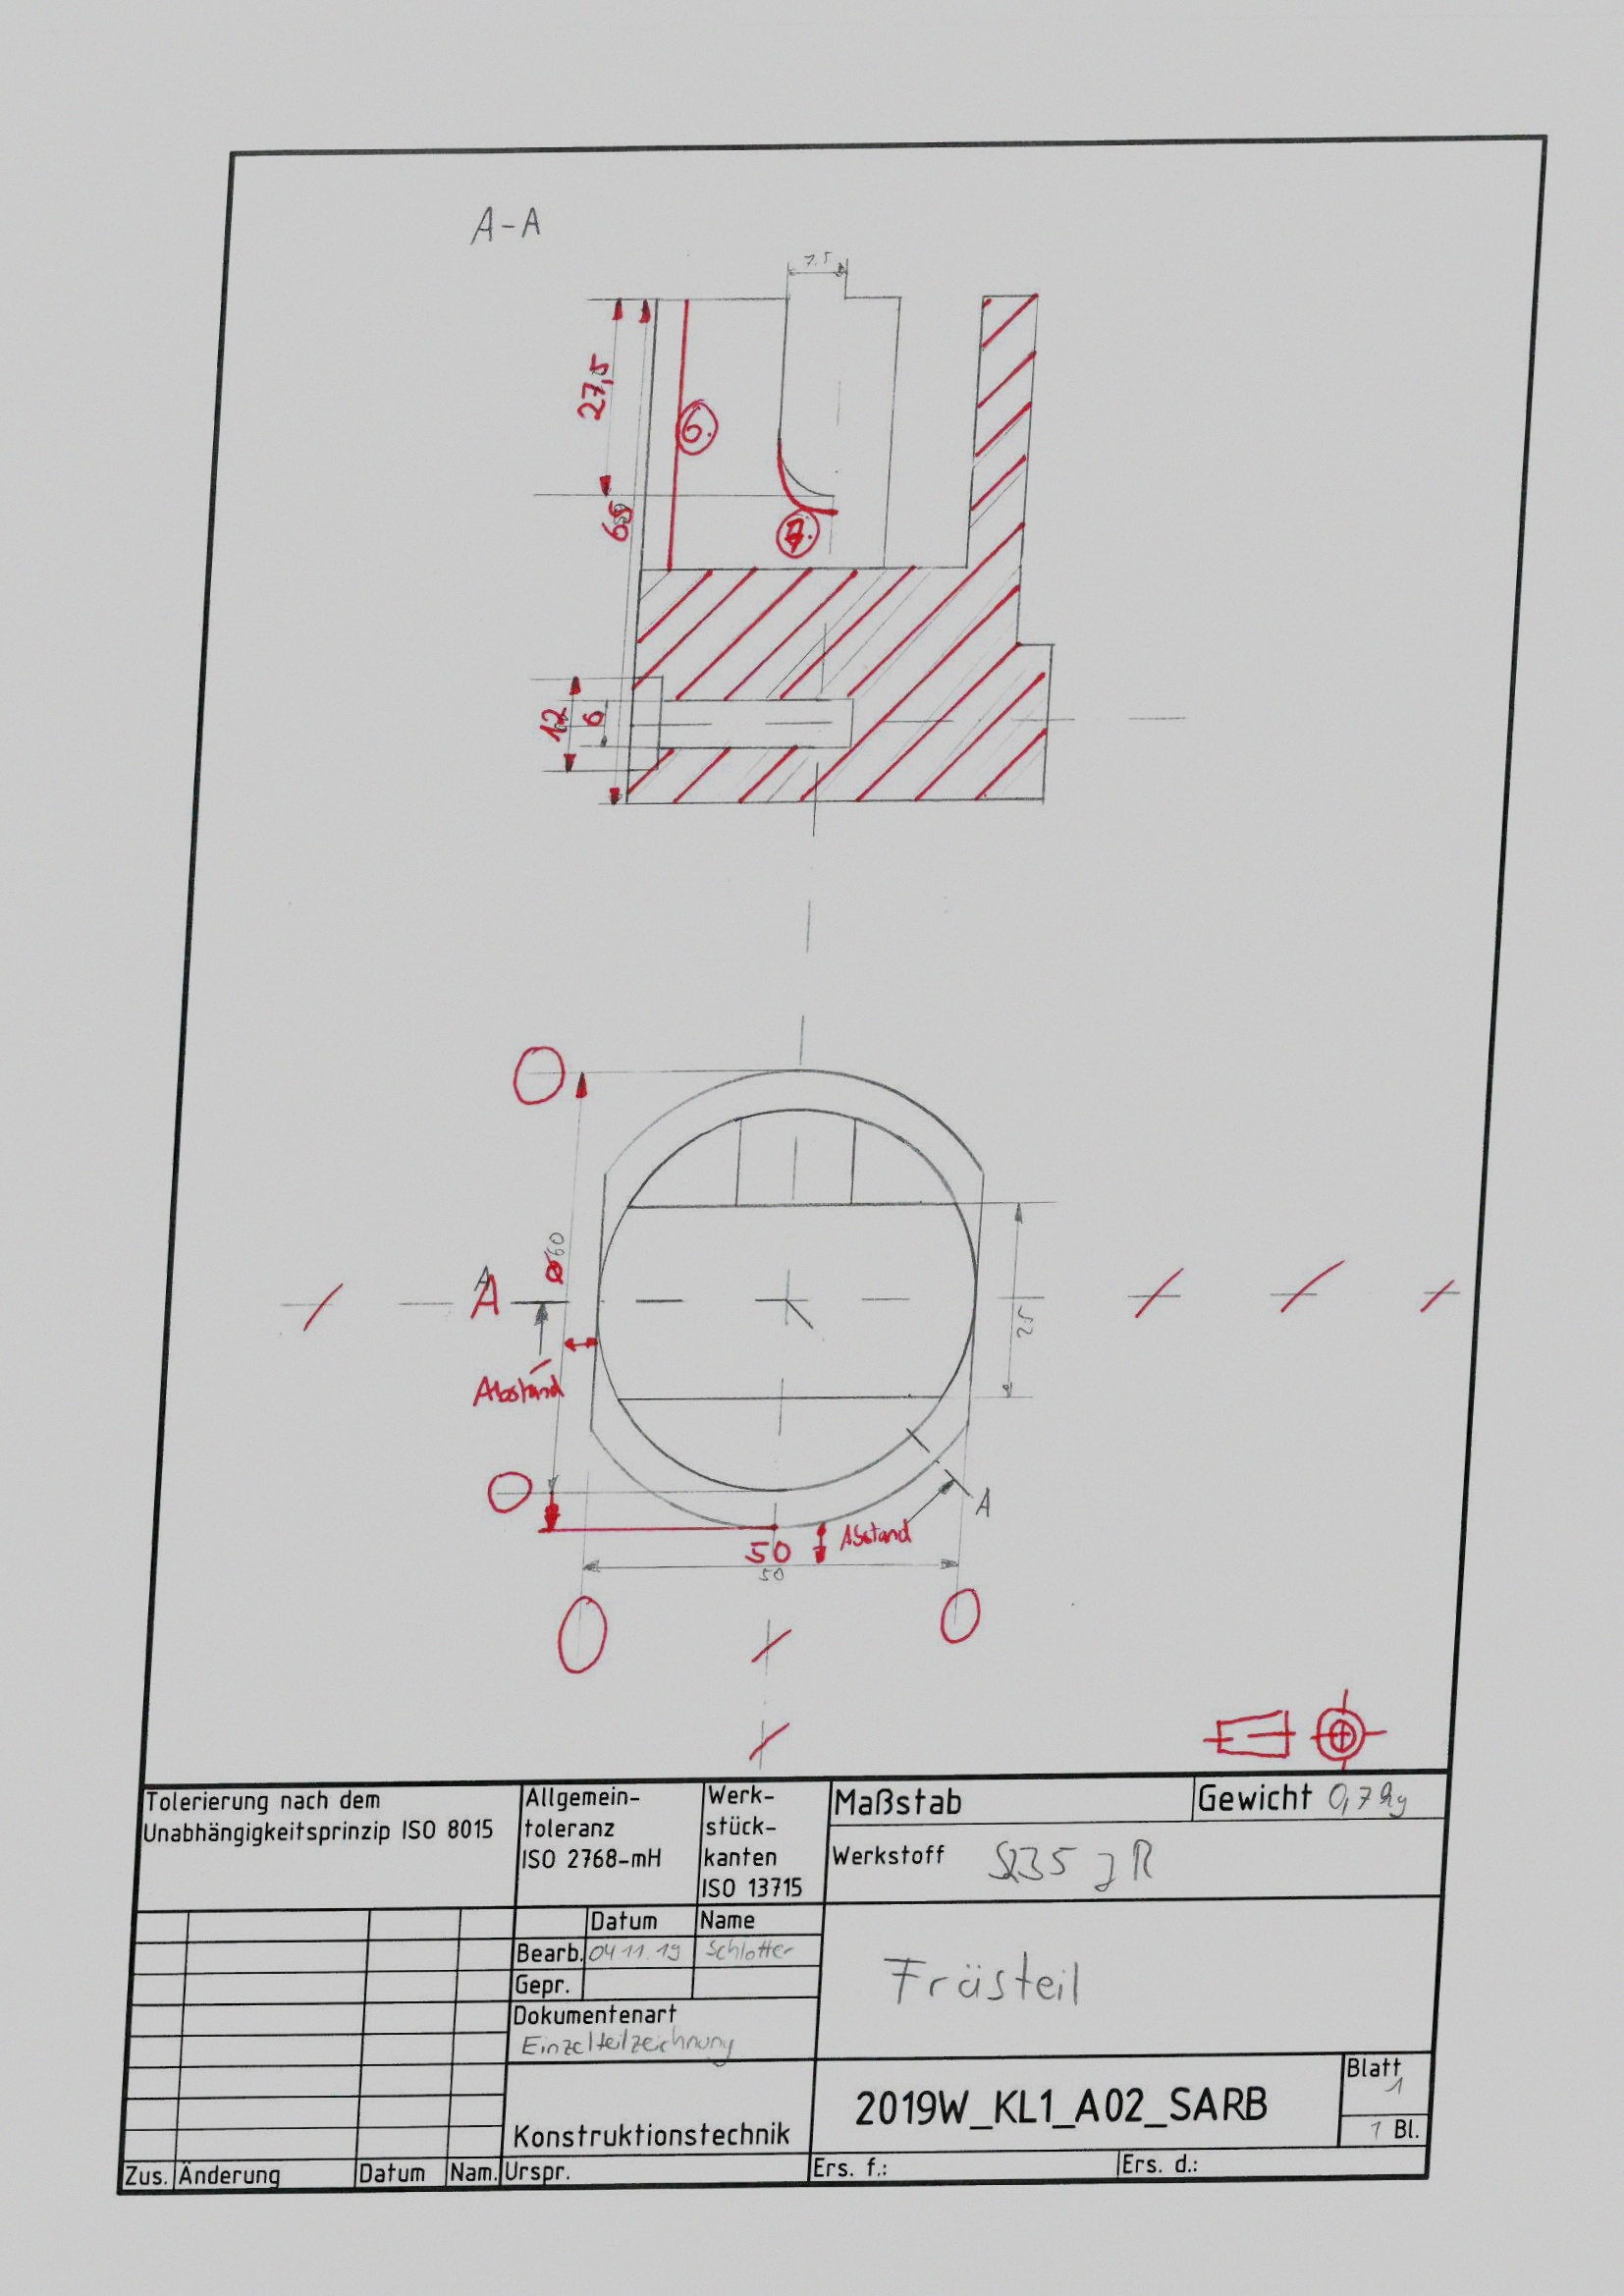 A-A
7.5
27,5
6.
65
7.
12
6
Ø60
A
A
25
Abstand
A
Abstand
50
50
Tolerierung nach dem
Unabhängigkeitsprinzip ISO 8015
Allgemein-
toleranz
ISO 2768-mH
Werk-
stück-
kanten
ISO 13715
Maßstab
Gewicht 0,7kg
Werkstoff S235 JR
Datum Name
Bearb. 04.11.19 Schlotter
Gepr.
Dokumentenart
Einzelteilzeichnung
Frästeil
Konstruktionstechnik
2019W_KL1_A02_SARB
Blatt
1
1 Bl.
Zus. Änderung Datum Nam. Urspr. Ers. f.: Ers. d.: